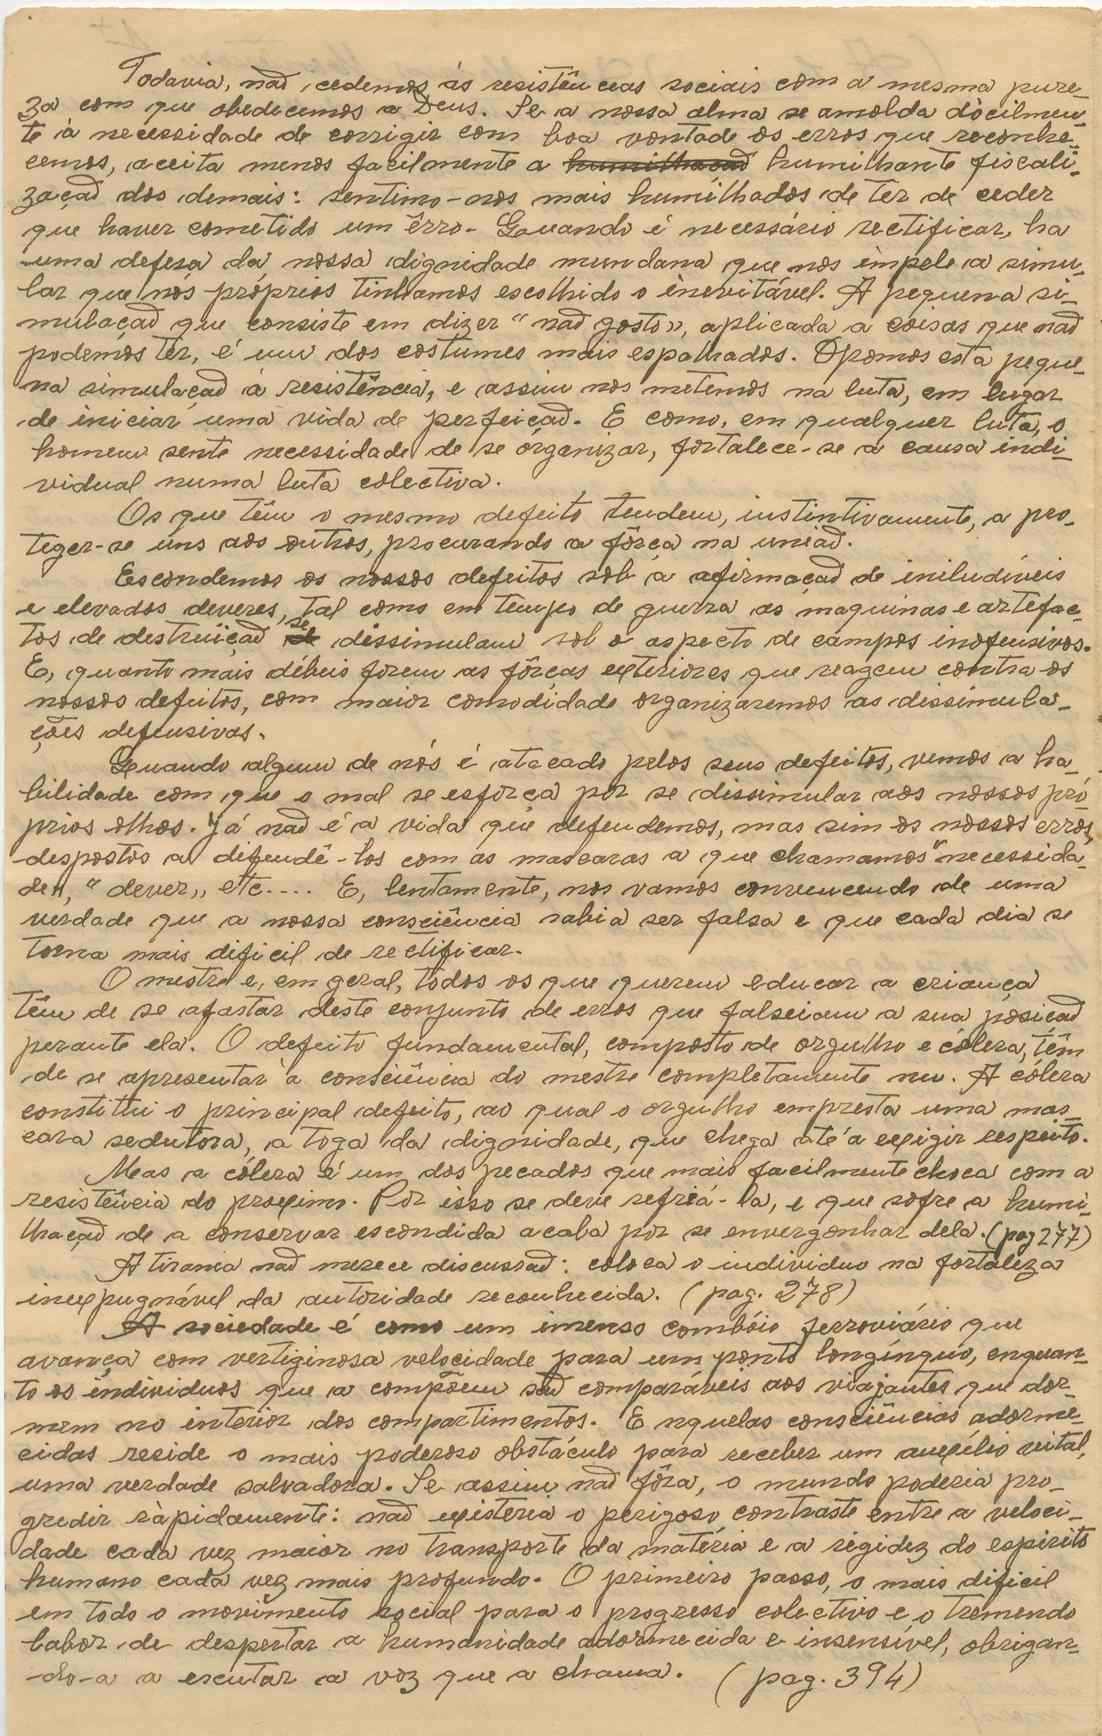 Todavia, não cedemos às resistências sociais com a mesma pure-
za com que obedecemos a Deus. Se a nossa alma se amolda dòcilmen-
te à necessidade de corrigir com boa vontade os erros que reconhe-
cemos, aceita menos facilmente a humilhação humilhante fiscali-
zação dos demais: sentimo-nos mais humilhados de ter de ceder
que haver cometido um êrro. Quando é necessário rectificar, ha
uma defesa da nossa dignidade mundana que nos impele a simu-
lar que nos próprios tinhamos escolhido o inevitável. A pequena si-
mulação que consiste em dizer "não gosto", aplicada a coisas que não
podemos ter, é um dos costumes mais espalhados. Opomos esta peque-
na simulação à resistência, e assim nos metemos na luta, em lugar
de iniciar uma vida de perfeição. E como, em qualquer luta, o
homem sente necessidade de se organizar, fortalece-se a causa indi-
vidual numa luta colectiva.
Os que têm o mesmo defeito tendem, instintivamente, a pro-
teger-se uns aos outros, procurando a fôrça na união.
Escondemos os nossos defeitos sob a afirmação de iniludíveis
e elevados deveres, tal como em tempo de guerra as maquinas e artefac-
tos de destruïção se dissimulam sob o aspecto de campos inofensivos.
E, quanto mais débeis forem as fôrças exteriores que reagem contra os
nossos defeitos, com maior comodidade organizaremos as dissimula-
ções defensivas.
Quando algum de nós é atacado pelos seus defeitos, vemos a ha-
bilidade com que o mal se esforça por se dissimular aos nossos pró-
prios olhos. Já não é a vida que defendemos, mas sim os nossos erros,
despostos a difendê-los com as mascaras a que chamamos "necessida-
de", "dever", etc.... E, lentamente, nos vamos convencendo de uma
verdade que a nossa consciência sabia ser falsa e que cada dia se
torna mais dificil de rectificar.
O mestre e, em geral, todos os que querem educar a criança
têm de se afastar deste conjunto de erros que falseiam a sua posição
perante ela. O defeito fundamental, composto de orgulho e cólera, têm
de se apresentar à consciência do mestre completamente nu. A cólera
constitui o principal defeito, ao qual o orgulho empresta uma mas-
cara sedutora, a toga da dignidade, que chega até a exigir respeito.
Mas a cólera é um dos pecados que mais facilmente choca com a
resistência do proximo. Por isso se deve refriá-la, e que sofre a humi-
lhação de a conservar escondida acaba por se envergonhar dela. (pag 277)
A tirania não merece discussão: coloca o individuo na fortaleza
inexpugnável da autoridade reconhecida. (pag. 278)
A sociedade é como um imenso combóio ferroviário que
avança com vertiginosa velocidade para um ponto longinquo, enquan-
to os individuos que a compõem são comparáveis aos viajantes que dor-
mem no interior dos compartimentos. E nquelas consciências adorme-
cidas reside o mais poderoso obstáculo para receber um auxílio vital,
uma verdade salvadora. Se assim não fôra, o mundo poderia pro-
gredir ràpidamente: não existeria o perigoso contraste entre a veloci-
dade cada vez maior no transporte da matéria e a rigidez do espirito
humano cada vez mais profundo. O primeiro passo, o mais dificil
em todo o movimento social para o progresso colectivo e o tremendo
labor de despertar a humanidade adormecida e insensível, obrigan-
do-a a escutar a voz que a chama. (pag. 394)